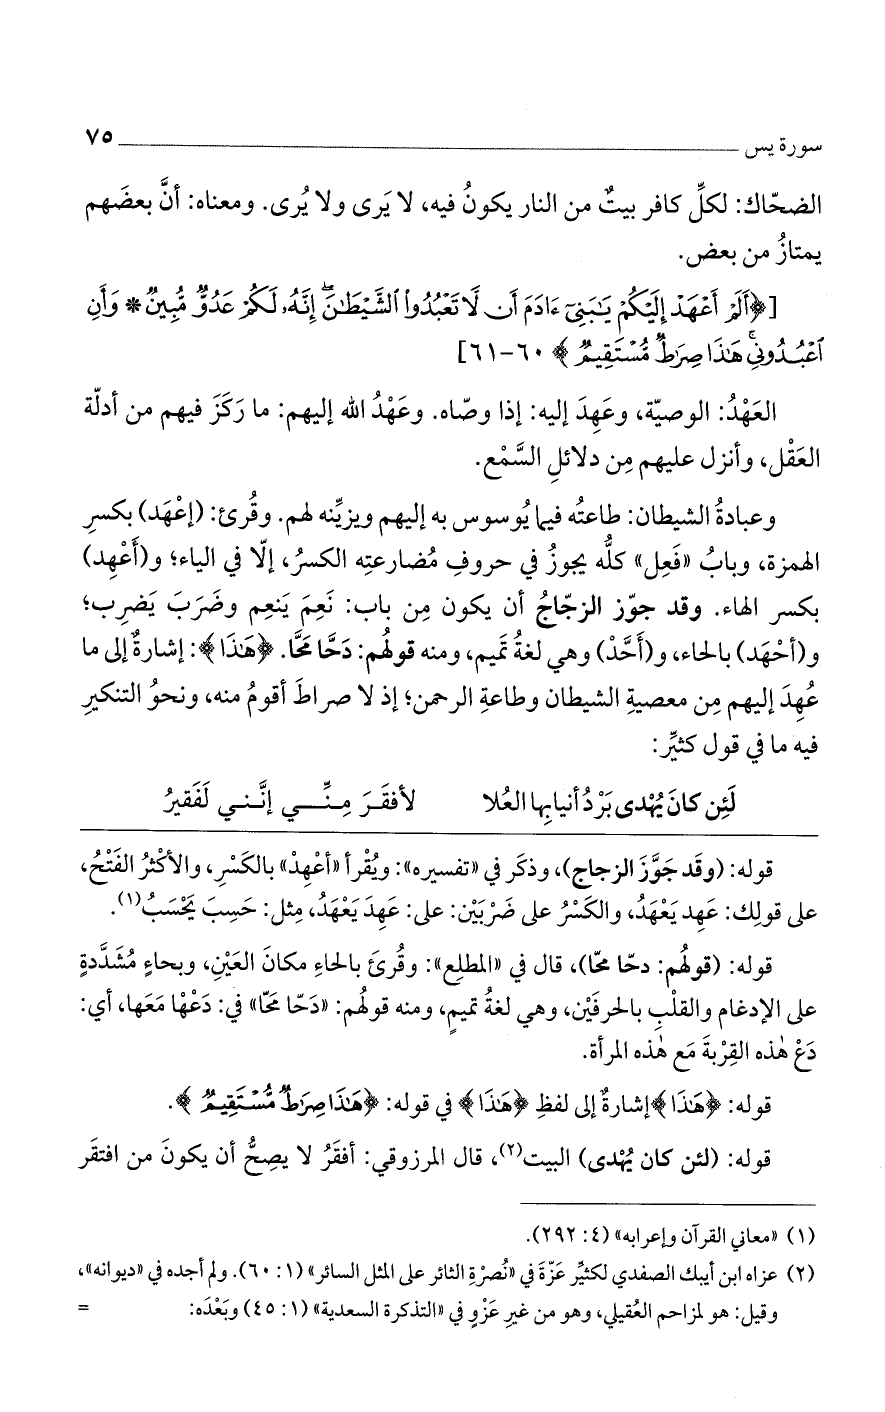 سورة يس ٧٥
الضحّاك: لكلِّ كافر بيتٌ من النار يكونُ فيه، لا يَرى ولا يُرى. ومعناه: أنَّ بعضَهم
يمتازُ من بعض.
[﴿أَلَمْ أَعْهَدْ إِلَيْكُمْ يَٰبَنِىٓ ءَادَمَ أَن لَّا تَعْبُدُوا۟ ٱلشَّيْطَٰنَ ۖ إِنَّهُۥ لَكُمْ عَدُوٌّ مُّبِينٌ * وَأَنِ
ٱعْبُدُونِى ۚ هَٰذَا صِرَٰطٌ مُّسْتَقِيمٌ﴾ ٦٠-٦١]
العَهْدُ: الوصيّة، وعَهِدَ إليه: إذا وصّاه. وعَهْدُ الله إليهم: ما رَكَزَ فيهم من أدلّة
العَقْل، وأنزل عليهم مِن دلائلِ السَّمْع.
وعبادةُ الشيطان: طاعتُه فيما يُوسوس به إليهم ويزيِّنه لهم. وقُرئ: (إعْهَد) بكسرِ
الهمزة، وبابُ «فَعِل» كلُّه يجوزُ في حروفِ مُضارعتِه الكسرُ، إلّا في الياء؛ و(أَعْهِد)
بكسر الهاء. وقد جوّز الزجّاجُ أن يكون مِن باب: نَعِمَ يَنعِم وضَرَبَ يَضرِب؛
و(أحْهَد) بالحاء، و(أَحَّدْ) وهي لغةُ تميم، ومنه قولُهم: دَحَّا مَحَّا. ﴿هَٰذَا﴾: إشارةٌ إلى ما
عُهِدَ إليهم مِن معصيةِ الشيطان وطاعةِ الرحمن؛ إذ لا صراطَ أقومُ منه، ونحوُ التنكيرِ
فيه ما في قول كثيِّر:
لَئِن كانَ يُهْدى بَرْدُ أنيابِها العُلا لأفقَرَ مِنِّــي إنَّنـي لَفَقيرُ
قوله: (وقَد جَوَّزَ الزجاج)، وذكَر في «تفسيره»: ويُقْرأ «أعْهِدْ» بالكَسْرِ، والأكْثرُ الفَتْحُ،
على قولِك: عَهِد يَعْهَدُ، والكَسْرُ على ضَرْبَيْن: على: عَهِدَ يَعْهَدُ، مِثل: حَسِبَ يَحْسَبُ(١).
قوله: (قولُهم: دحّا محّا)، قال في «المطلع»: وقُرئَ بالحاءِ مكانَ العَيْنِ، وبحاءٍ مُشَدَّدةٍ
على الإدغام والقلْبِ بالحرفَيْن، وهي لغةُ تميمٍ، ومنه قولُهم: «دَحّا مَحّا» في: دَعْها مَعَها، أي:
دَعْ هٰذه القِرْبةَ مَع هٰذه المرأة.
قوله: ﴿هَٰذَا﴾ إشارةٌ إلى لفظِ ﴿هَٰذَا﴾ في قوله: ﴿هَٰذَا صِرَٰطٌ مُّسْتَقِيمٌ﴾.
قوله: (لئن كان يُهْدى) البيت(٢)، قال المرزوقي: أفقَرُ لا يصِحُّ أن يكونَ من افتقَر
(١) «معاني القرآن وإعرابه» (٤: ٢٩٢).
(٢) عزاه ابن أيبك الصفدي لكثيِّر عَزّةَ في «نُصرْةِ الثائر على المثل السائر» (١: ٦٠). ولم أجده في «ديوانه»،
وقيل: هو لمزاحم العُقيلي، وهو من غيرِ عَزْوٍ في «التذكرة السعدية» (١: ٤٥) وبَعْدَه: =